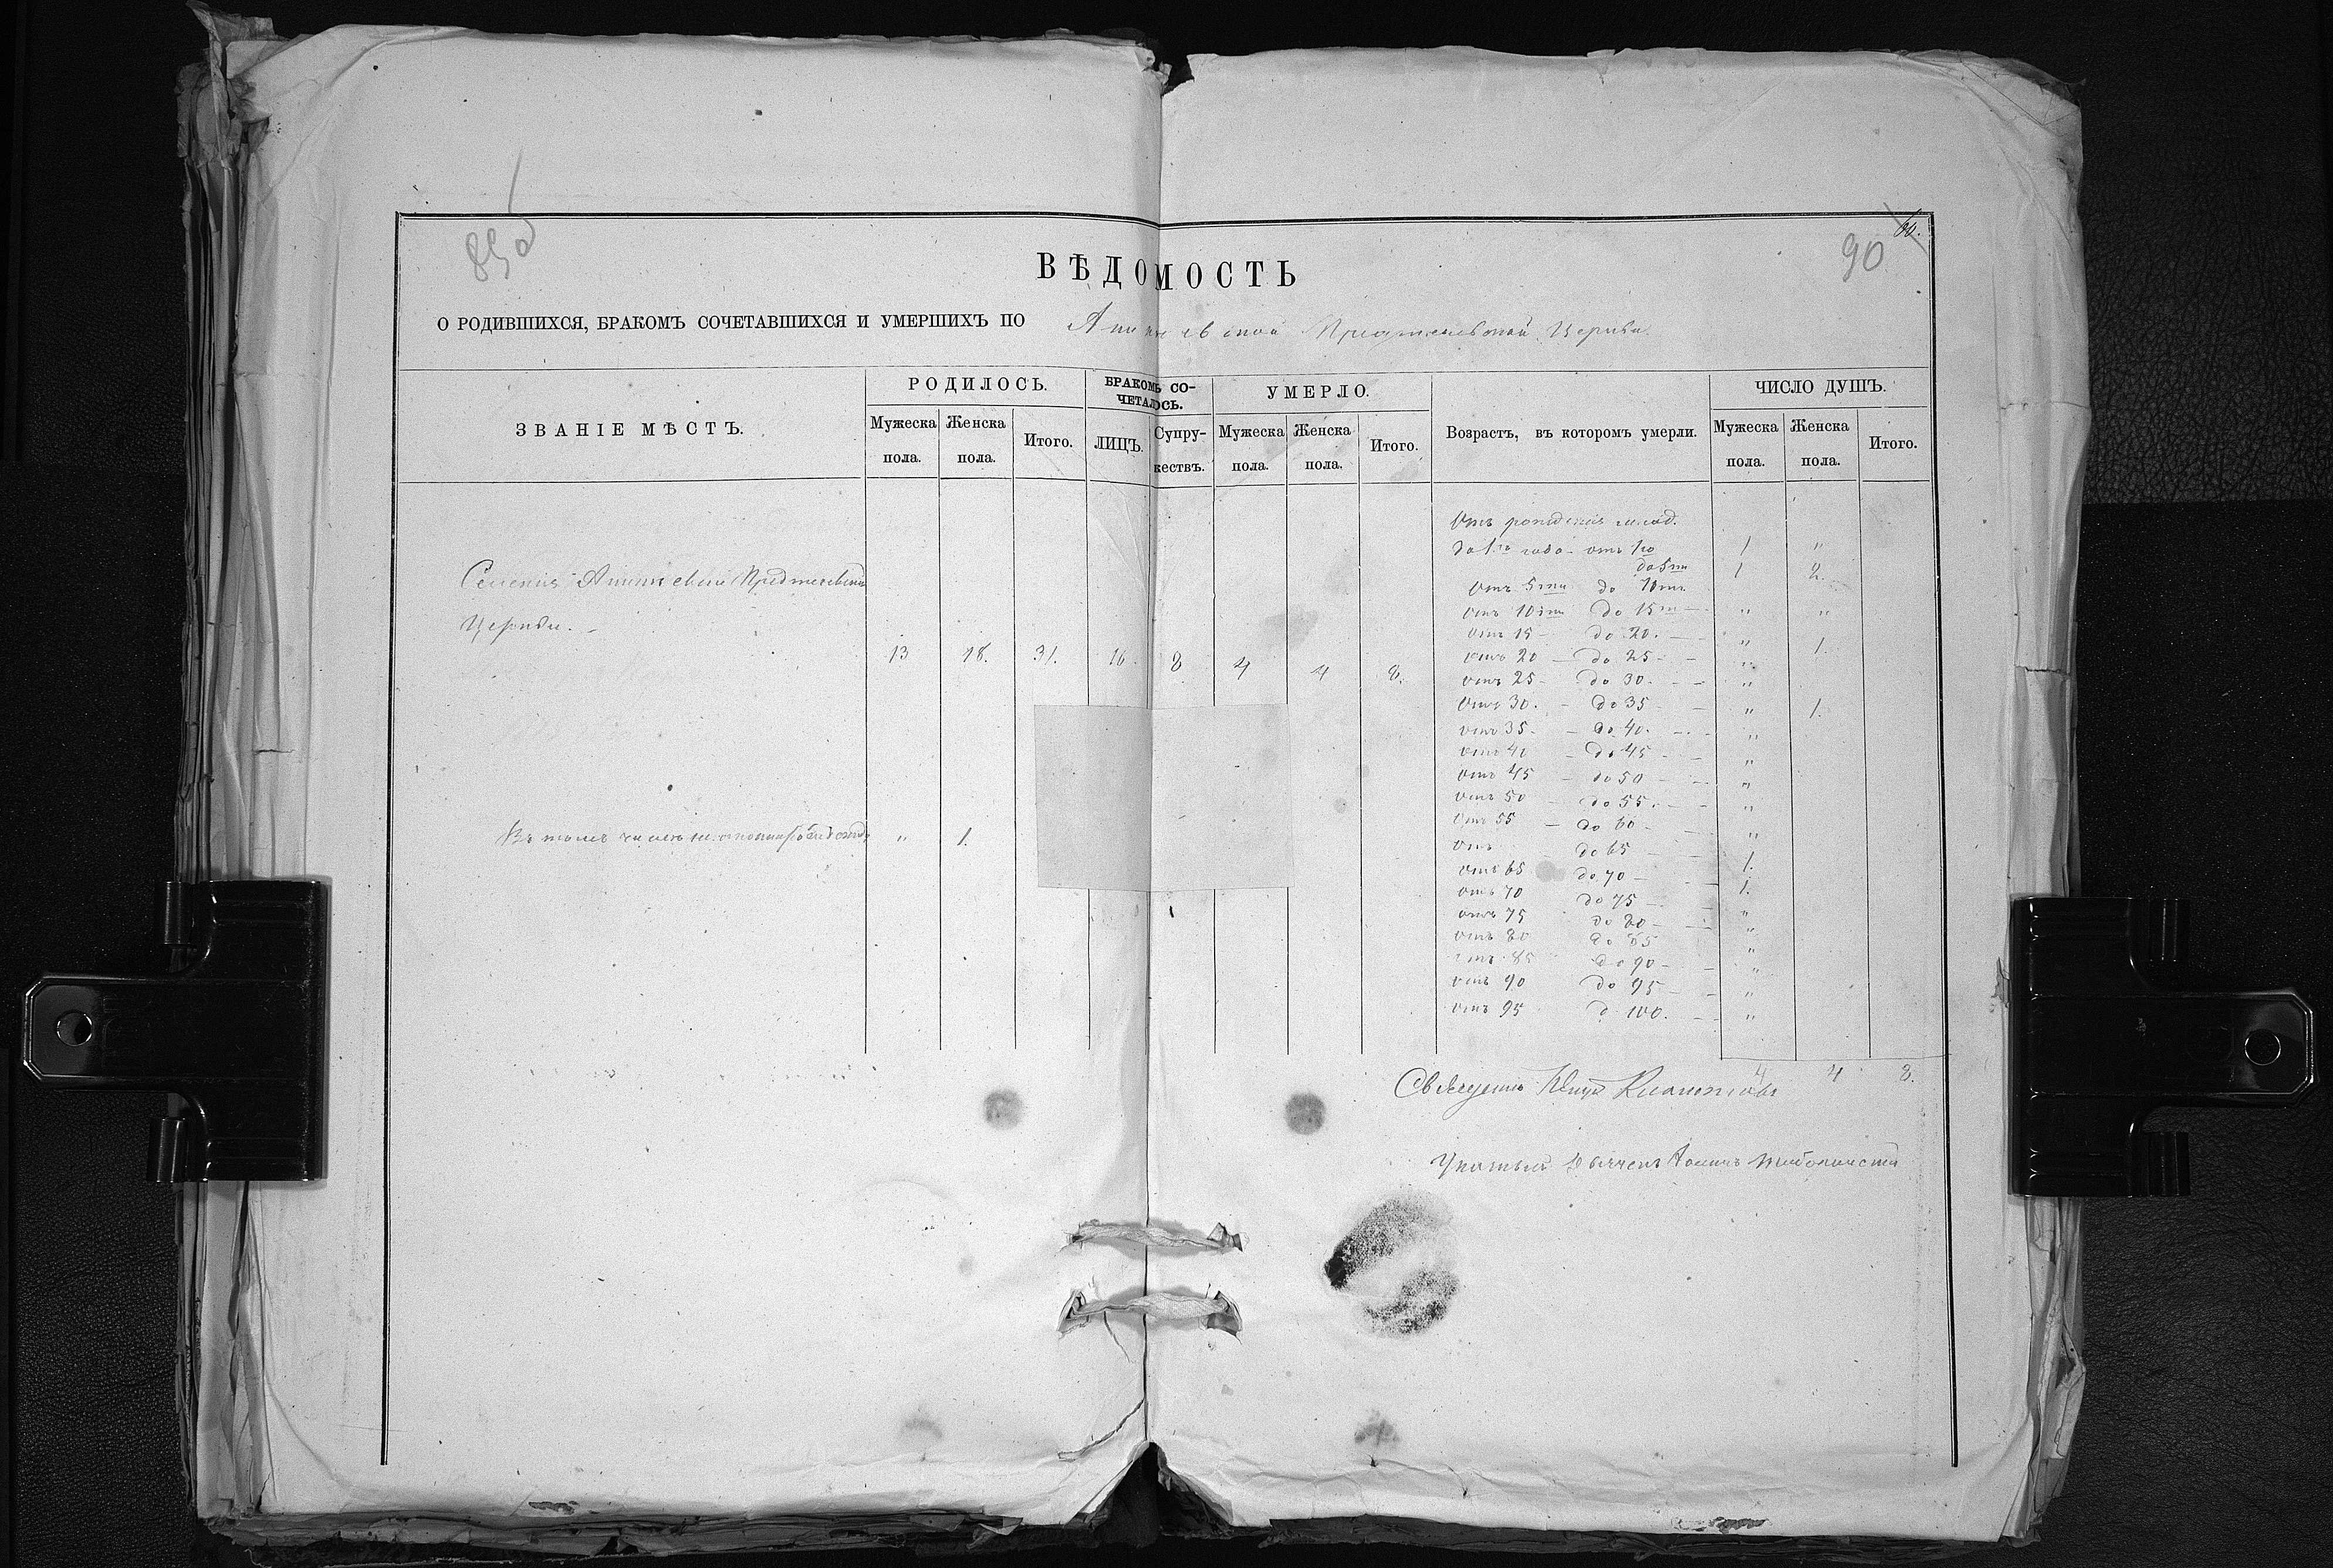 90
ВѢДОМОСТЬ
О РОДИВШИХСЯ, БРАКОМЪ СОЧЕТАВШИХСЯ И УМЕРШИХЪ ПО Церкви.
ЗВАНІЕ МѢСТЪ.
РОДИЛОСЬ.
Мужеска пола.
Женска пола.
Итого.
БРАКОМЪ СО-
ЧЕТАЛОСЬ.
ЛИЦЪ.
Супру-
жествъ.
УМЕРЛО.
Мужеска пола.
Женска пола.
Итого.
Возрастъ, въ которомъ умерли.
ЧИСЛО ДУШЪ.
Мужеска пола.
Женска пола.
Итого.
Селенія
Церкви.
13 18. 31. 16. 8 4 4 8.
Въ томъ числѣ " 1.
Отъ рожденія
до 1го года - отъ 1го 1 "
до 5ти 1 2.
отъ 5ти до 10ти
отъ 10ти до 15ти " "
отъ 15 до 20. "
отъ 20 до 25 " 1.
отъ 25 до 30. "
отъ 30. до 35 " 1.
отъ 35 до 40. "
отъ 40 до 45 "
отъ 45 до 50 "
отъ 50 до 55. "
отъ 55 до 60 "
отъ до 65 1.
отъ 65 до 70 1.
отъ 70 до 75 "
отъ 75 до 80 "
отъ 80 до 85 "
отъ 85 до 90 "
отъ 90 до 95 "
отъ 95 до 100. "
4 4 8.
Священникъ